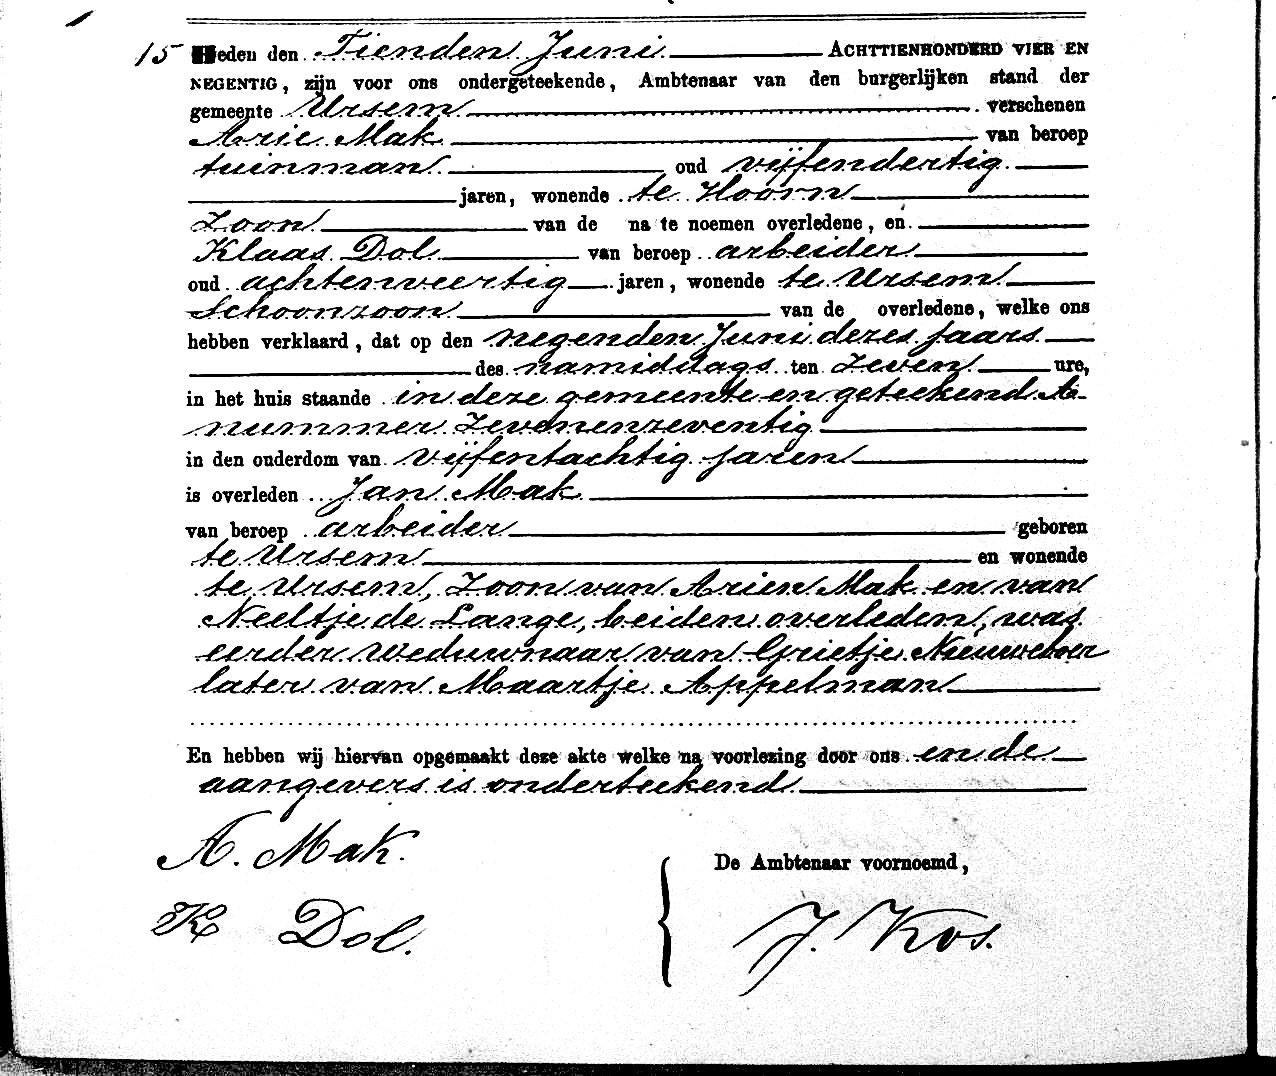 15 Heden den Tienden Juni ACHTTIENHONDERD VIER EN
NEGENTIG, zijn voor ons ondergeteekende, Ambtenaar van den burgerlijken stand der
gemeente Ursem verschenen
Arie Mak van beroep
tuinman oud vijfendertig
jaren, wonende te Hoorn
Zoon van de na te noemen overledene, en
Klaas Dol van beroep arbeider
oud achtenveertig jaren, wonende te Ursem
Schoonzoon van de overledene, welke ons
hebben verklaard, dat op den negenden Juni dezes jaars
des namiddags ten zeven ure,
in het huis staande in deze gemeente en geteekend A
nummer Zevenenzeventig
in den ouderdom van vijfentachtig jaren
is overleden Jan Mak
van beroep arbeider geboren
te Ursem en wonende
te Ursem, Zoon van Arien Mak en van
Neeltje de Lange, beiden overleden, was
eerder weduwnaar van Grietje Nieuweboer
later van Maartje Appelman
En hebben wij hiervan opgemaakt deze akte welke na voorlezing door ons en de
aangevers is onderteekend
A. Mak.
De Ambtenaar voornoemd,
K Dol.
J. Kos.